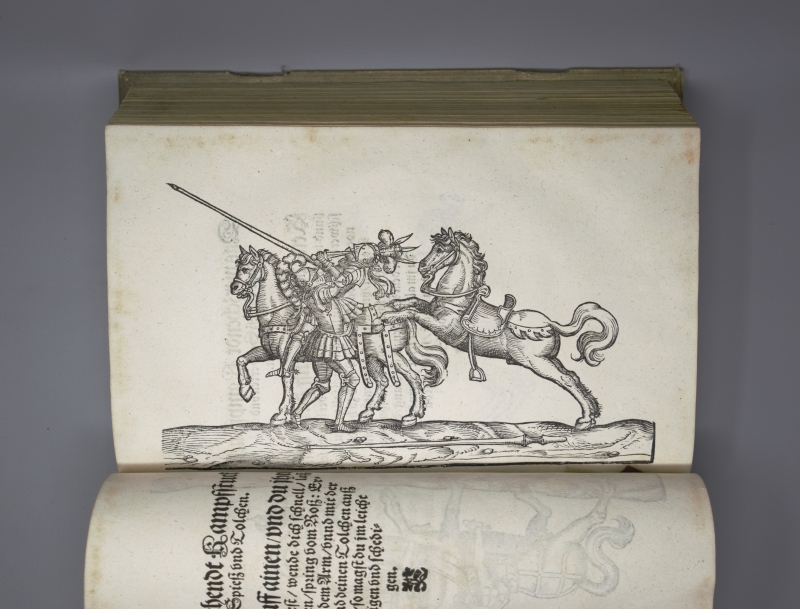 hendt Kampffstu
Spieß vnd Tolchen.
uff einen/ vnd du jm
est/ wende dich schnell/
en/ spring vom Roß: Er-
dem Arm/ vnnd mit der
nd deinen Tolchen auß
so magst du jm leicht
igen vnd schedi-
gen.